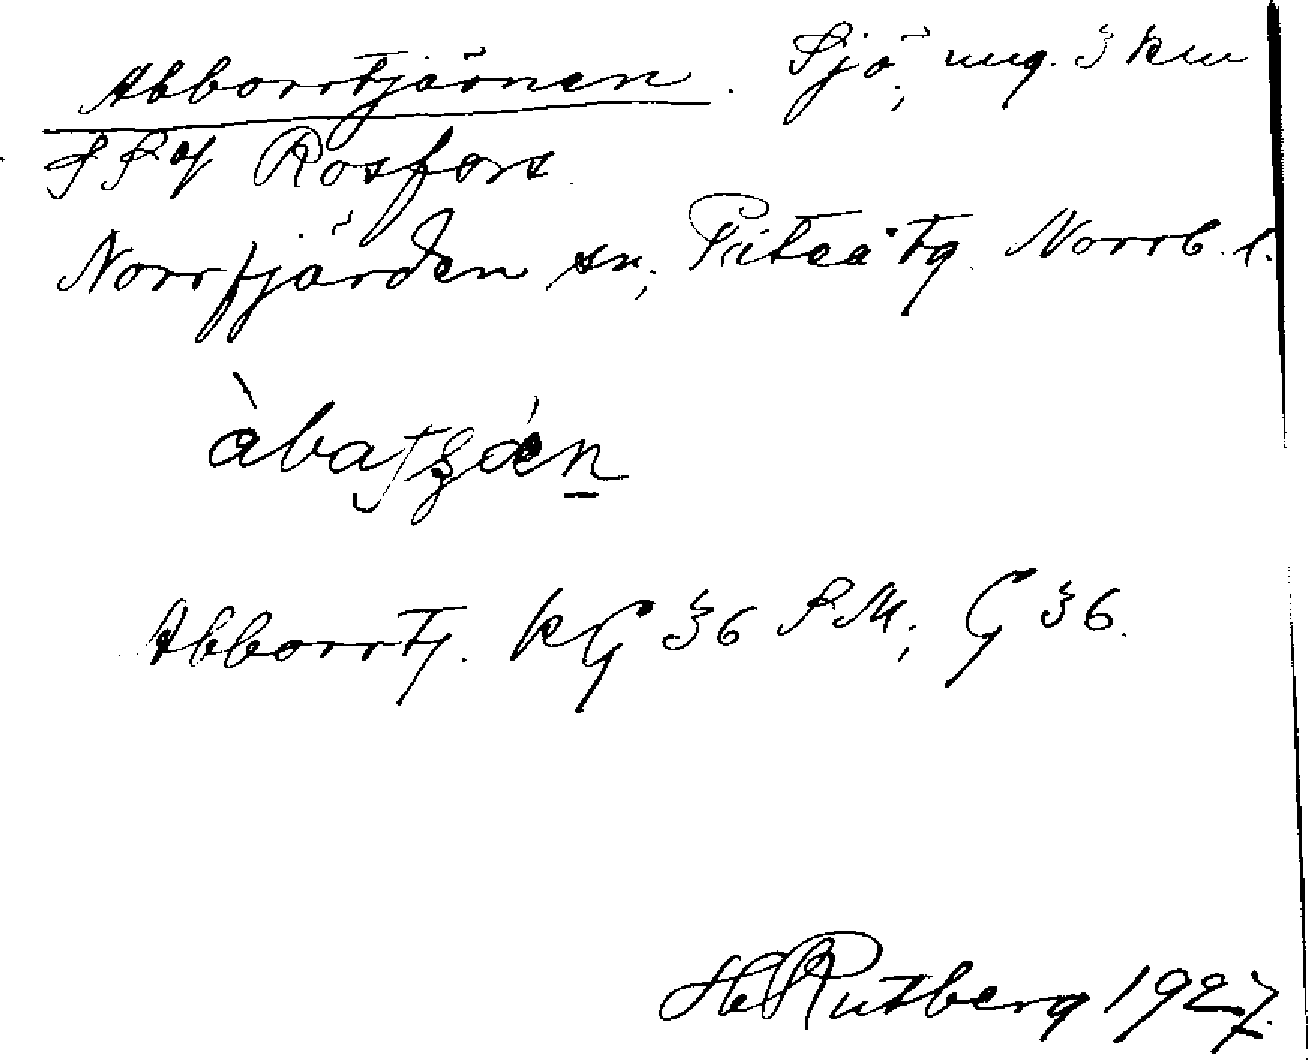 Abborrtjärnen. Sjö, ung. 3 km
SSV Rosfors
Norrfjärden sn, Piteå tg. Norrb. l.
Abborrtj. KG 36 SM; G 36.
H Rutberg 1927.